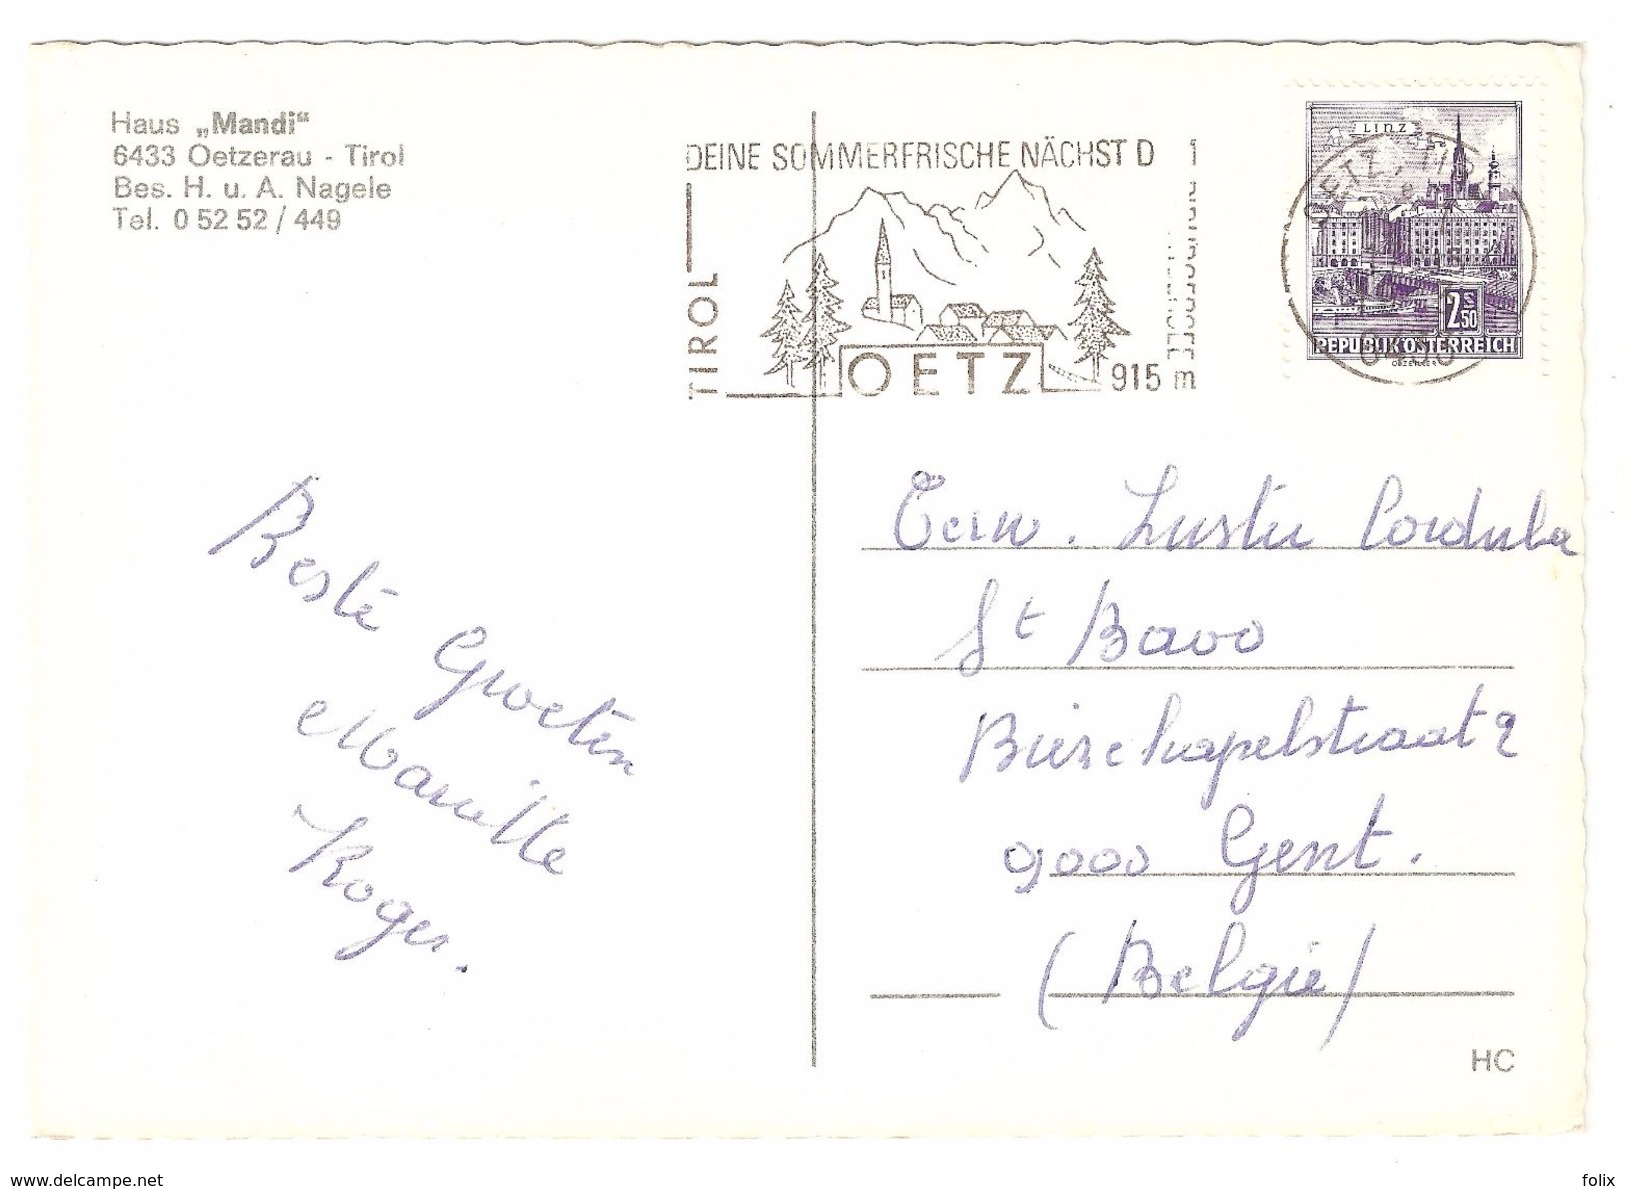 Haus „Mandi“
6433 Oetzerau - Tirol
Bes. H. u. A. Nagele
Tel. 0 52 52 / 449
DEINE SOMMERFRISCHE NÄCHST D
TIROL
OETZ
915 m
LINZ
2 S 50
REPUBLIK ÖSTERREICH
Beste Groeten
Mariette
Roger.
Eerw. Zuster Cordula
St Bavo
Biezekapelstraat 2
9000 Gent.
(België)
HC
www.delcampe.net
folix